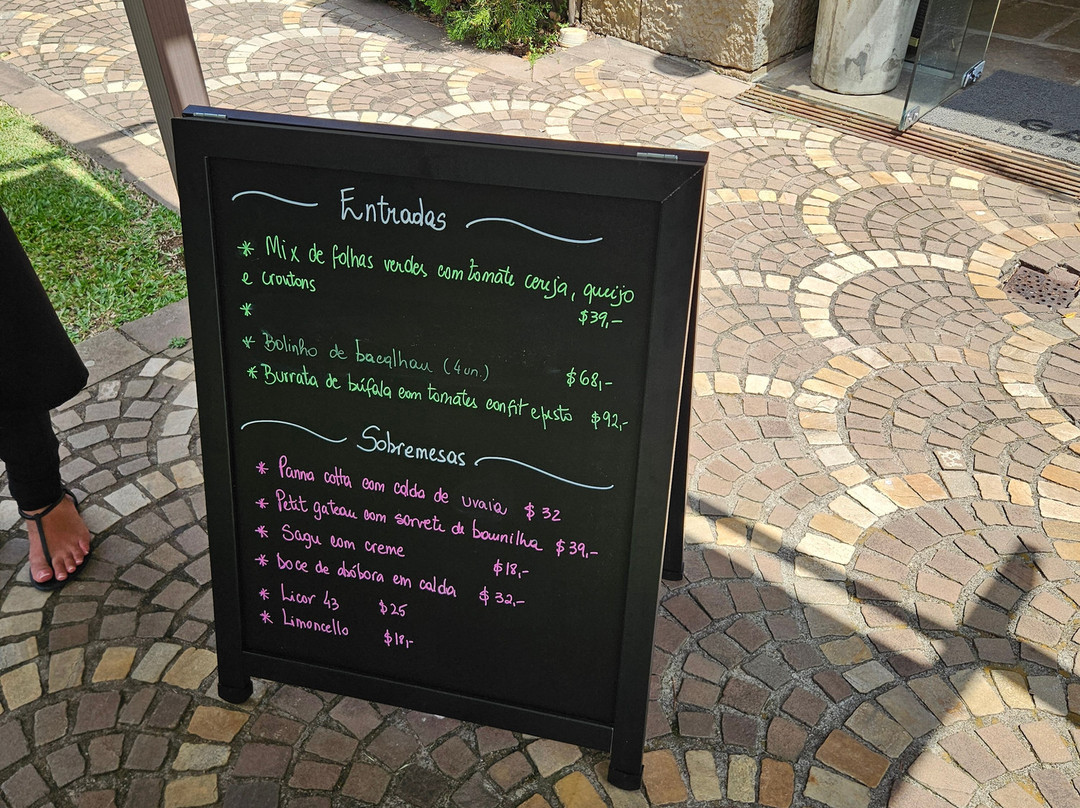 Entradas
* Mix de folhas verdes com tomate cereja, queijo
e croutons
* $39,-
* Bolinho de bacalhau (4 un.) $68,-
* Burrata de búfala com tomates confit e pesto $92,-
Sobremesas
* Panna cotta com calda de uvaia $32
* Petit gateau com sorvete de baunilha $39,-
* Sagu com creme $18,-
* Doce de abóbora em calda $32,-
* Licor 43 $25
* Limoncello $18,-
GA
ENO